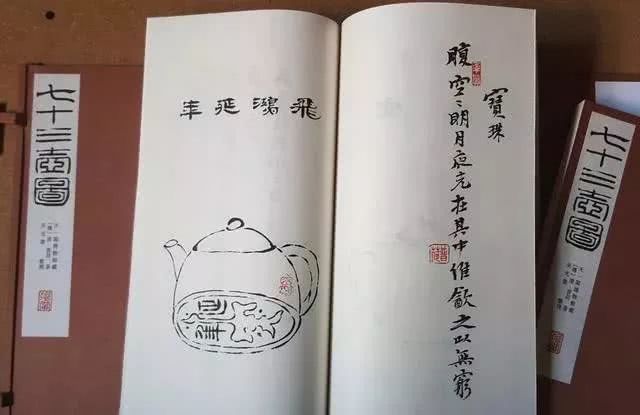 七十三壺圖
寶珠
腹空々明月夜光在其中維之以無窮
飛鴻延年
延年
七十三壺圖